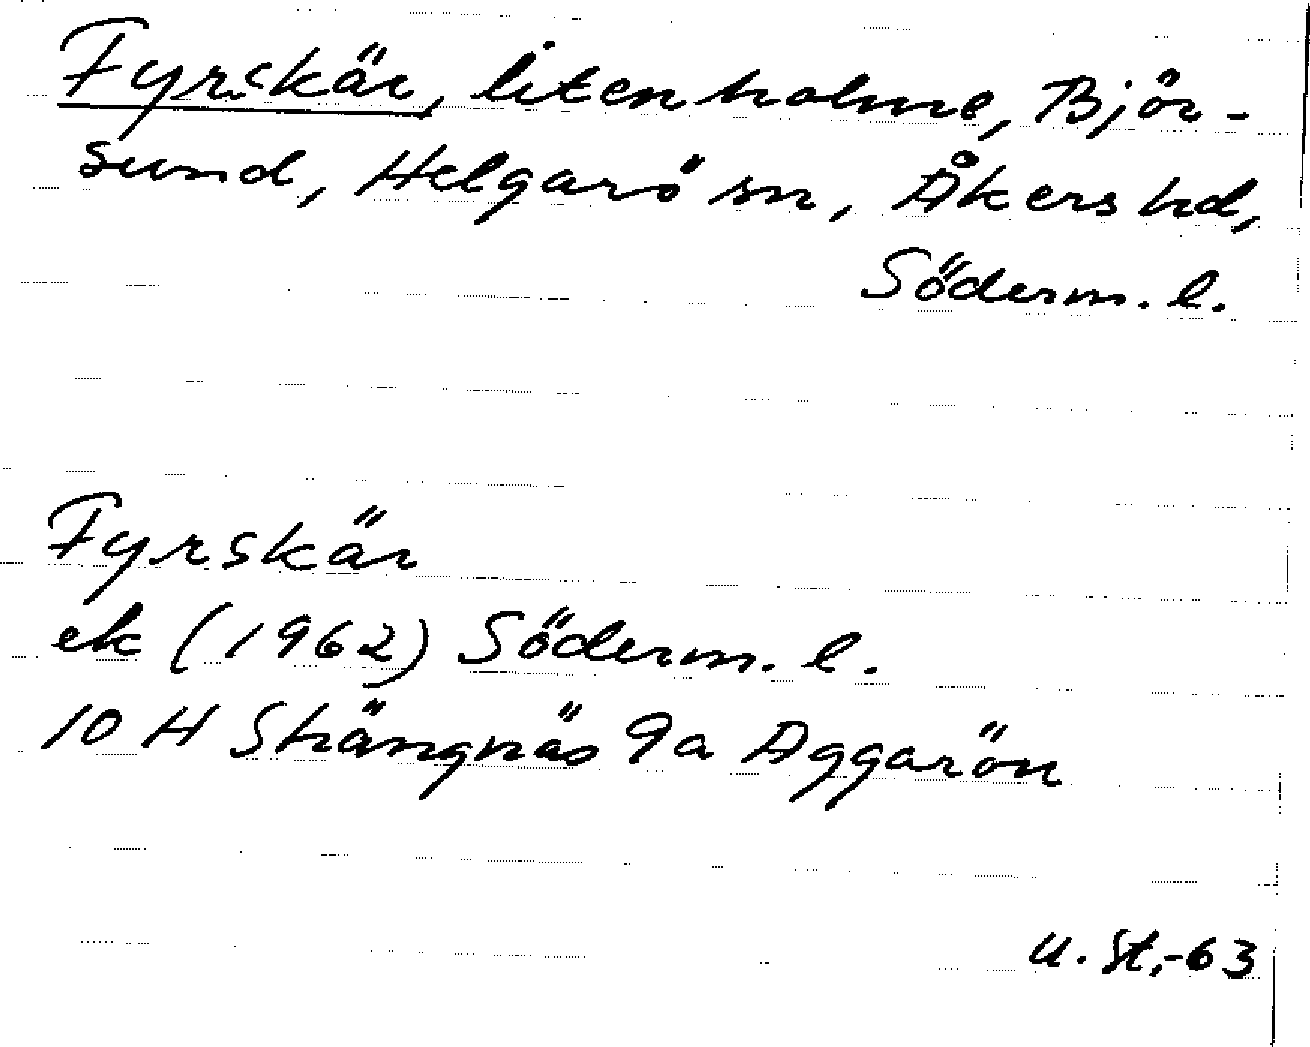 Fyrskär, liten holme, Björ-
sund, Helgarö sn, Åkers hd,
Söderm. l.
Fyrskär
ek (1962) Söderm. l.
10 H Strängnäs 9a Aggarön
U. St.-63